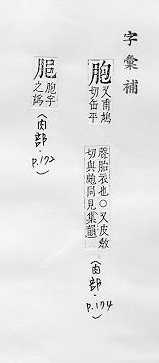 字彙補
胞
又甫鳩
切缶平
聲胎衣也○又皮敎
切與皰同見集韻
(肉部.
p.174)
胞字
之譌
(肉部.
p.172)